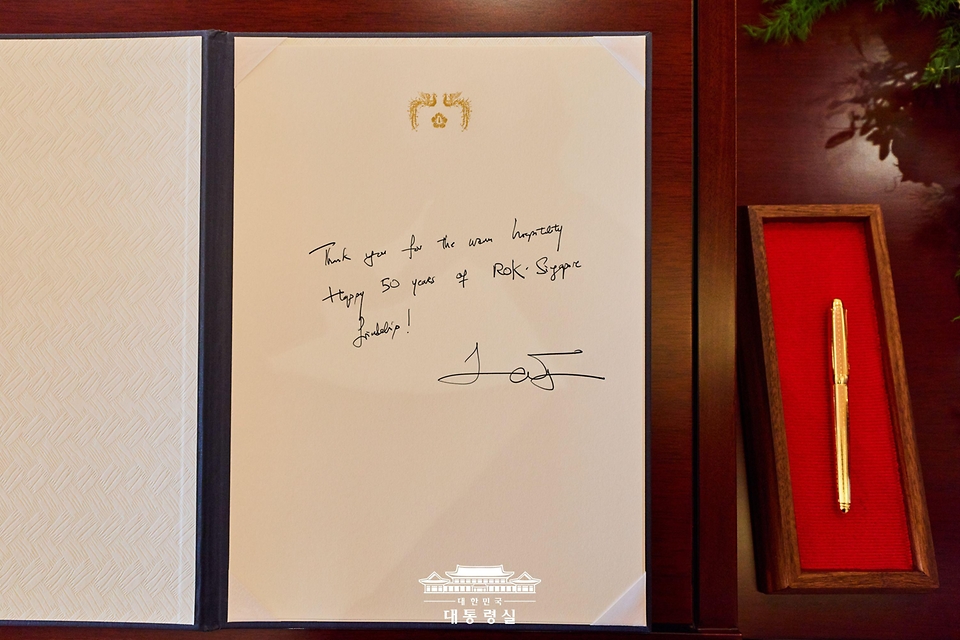 Thank you for the warm hospitality
Happy 50 years of ROK-Singapore
friendship!
대한민국
대통령실